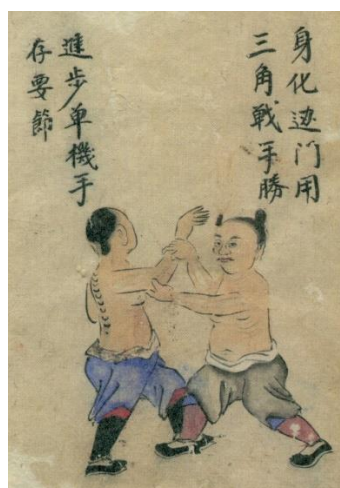 身化边门用
三角戰手勝
進步单機手
存要節